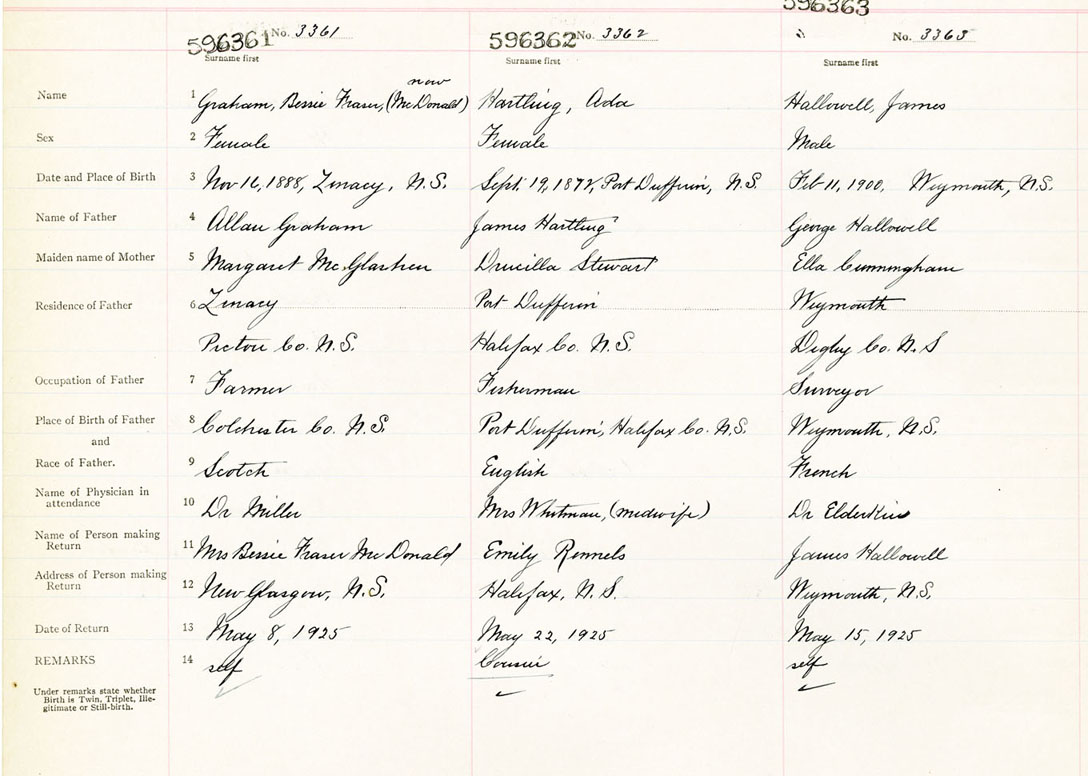 596363
596361 No. 3361 596362 No. 3362 No. 3363
Surname first Surname first Surname first
now
Name 1 Graham, Bessie Fraser, (McDonald) Hartling, Ada Hallowell, James
Sex 2 Female Female Male
Date and Place of Birth 3 Nov 16, 1888, N.S. Sept. 19, Port Dufferin, N.S. Feb 11, 1900, Weymouth, N.S.
Name of Father 4 Allan Graham James Hartling George Hallowell
Maiden name of Mother 5 Margaret Drucilla Stewart Ella Cunningham
Residence of Father 6 Port Dufferin Weymouth
Pictou Co. N.S. Halifax Co. N.S. Digby Co. N.S
Occupation of Father 7 Farmer Fisherman Surveyor
Place of Birth of Father 8 Colchester Co. N.S. Port Dufferin, Halifax Co. N.S. Weymouth, N.S.
and
Race of Father. 9 Scotch English French
Name of Physician in
attendance 10 Dr Miller Mrs Whitman, (midwife) Dr Elderkin
Name of Person making
Return 11 Mrs Bessie Fraser McDonald Emily Rennels James Hallowell
Address of Person making
Return 12 New Glasgow, N.S. Halifax, N.S. Weymouth, N.S.
Date of Return 13 May 8, 1925 May 22, 1925 May 15, 1925
REMARKS 14 self Cousin self
Under remarks state whether
Birth is Twin, Triplet, Ille-
gitimate or Still-birth.